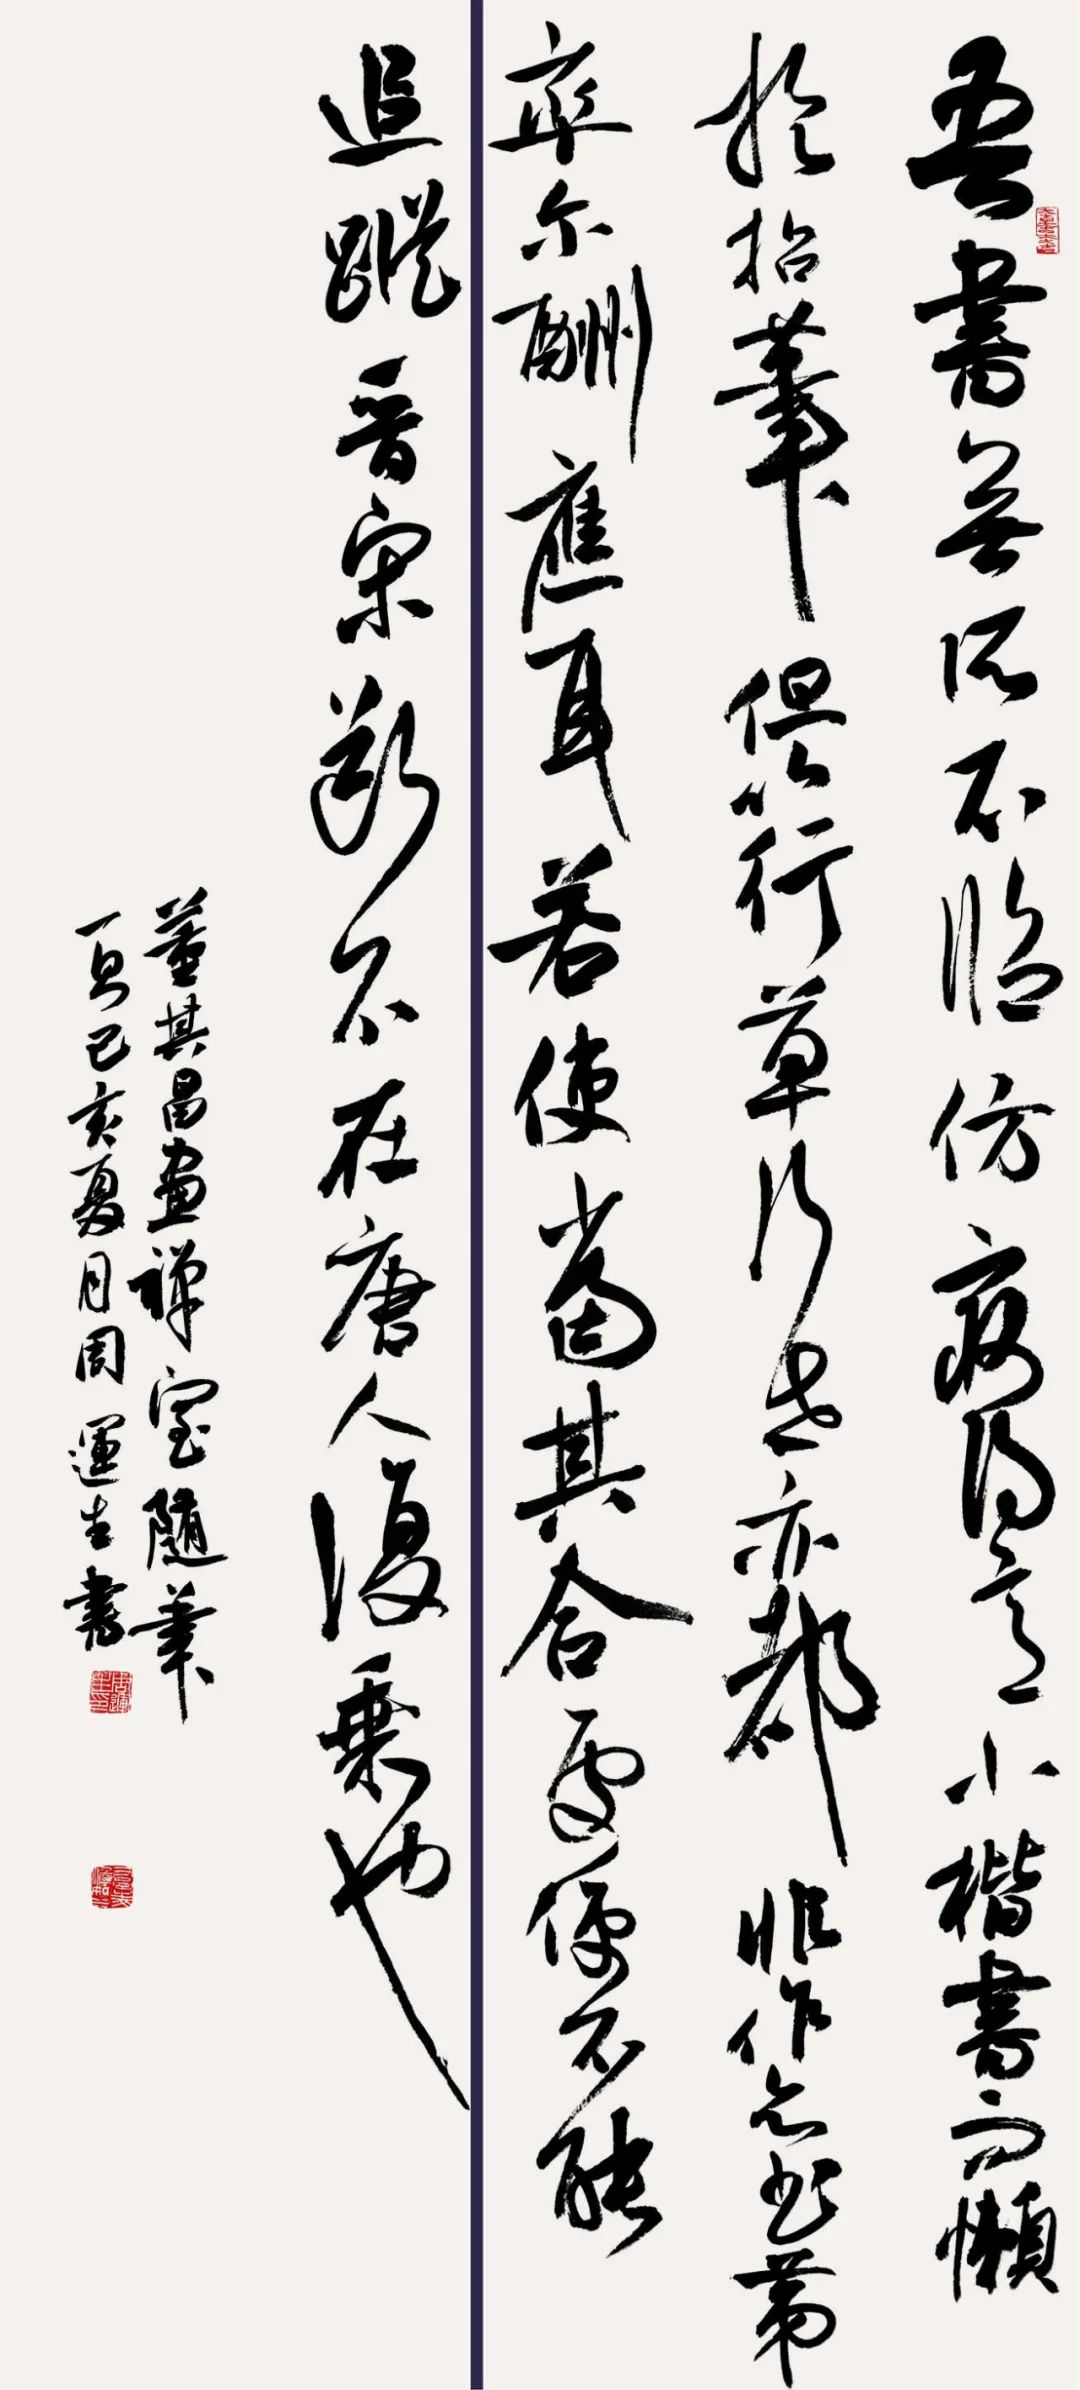 吾書無所不臨仿最得意小楷書而懶
於拈筆但以行草行世亦都非作意書第
率尔酬應耳若使當其合處便不能
追蹤晋宋斷不在唐人復乘也
董其昌畫禅室隨筆
一則己亥夏月周運生書